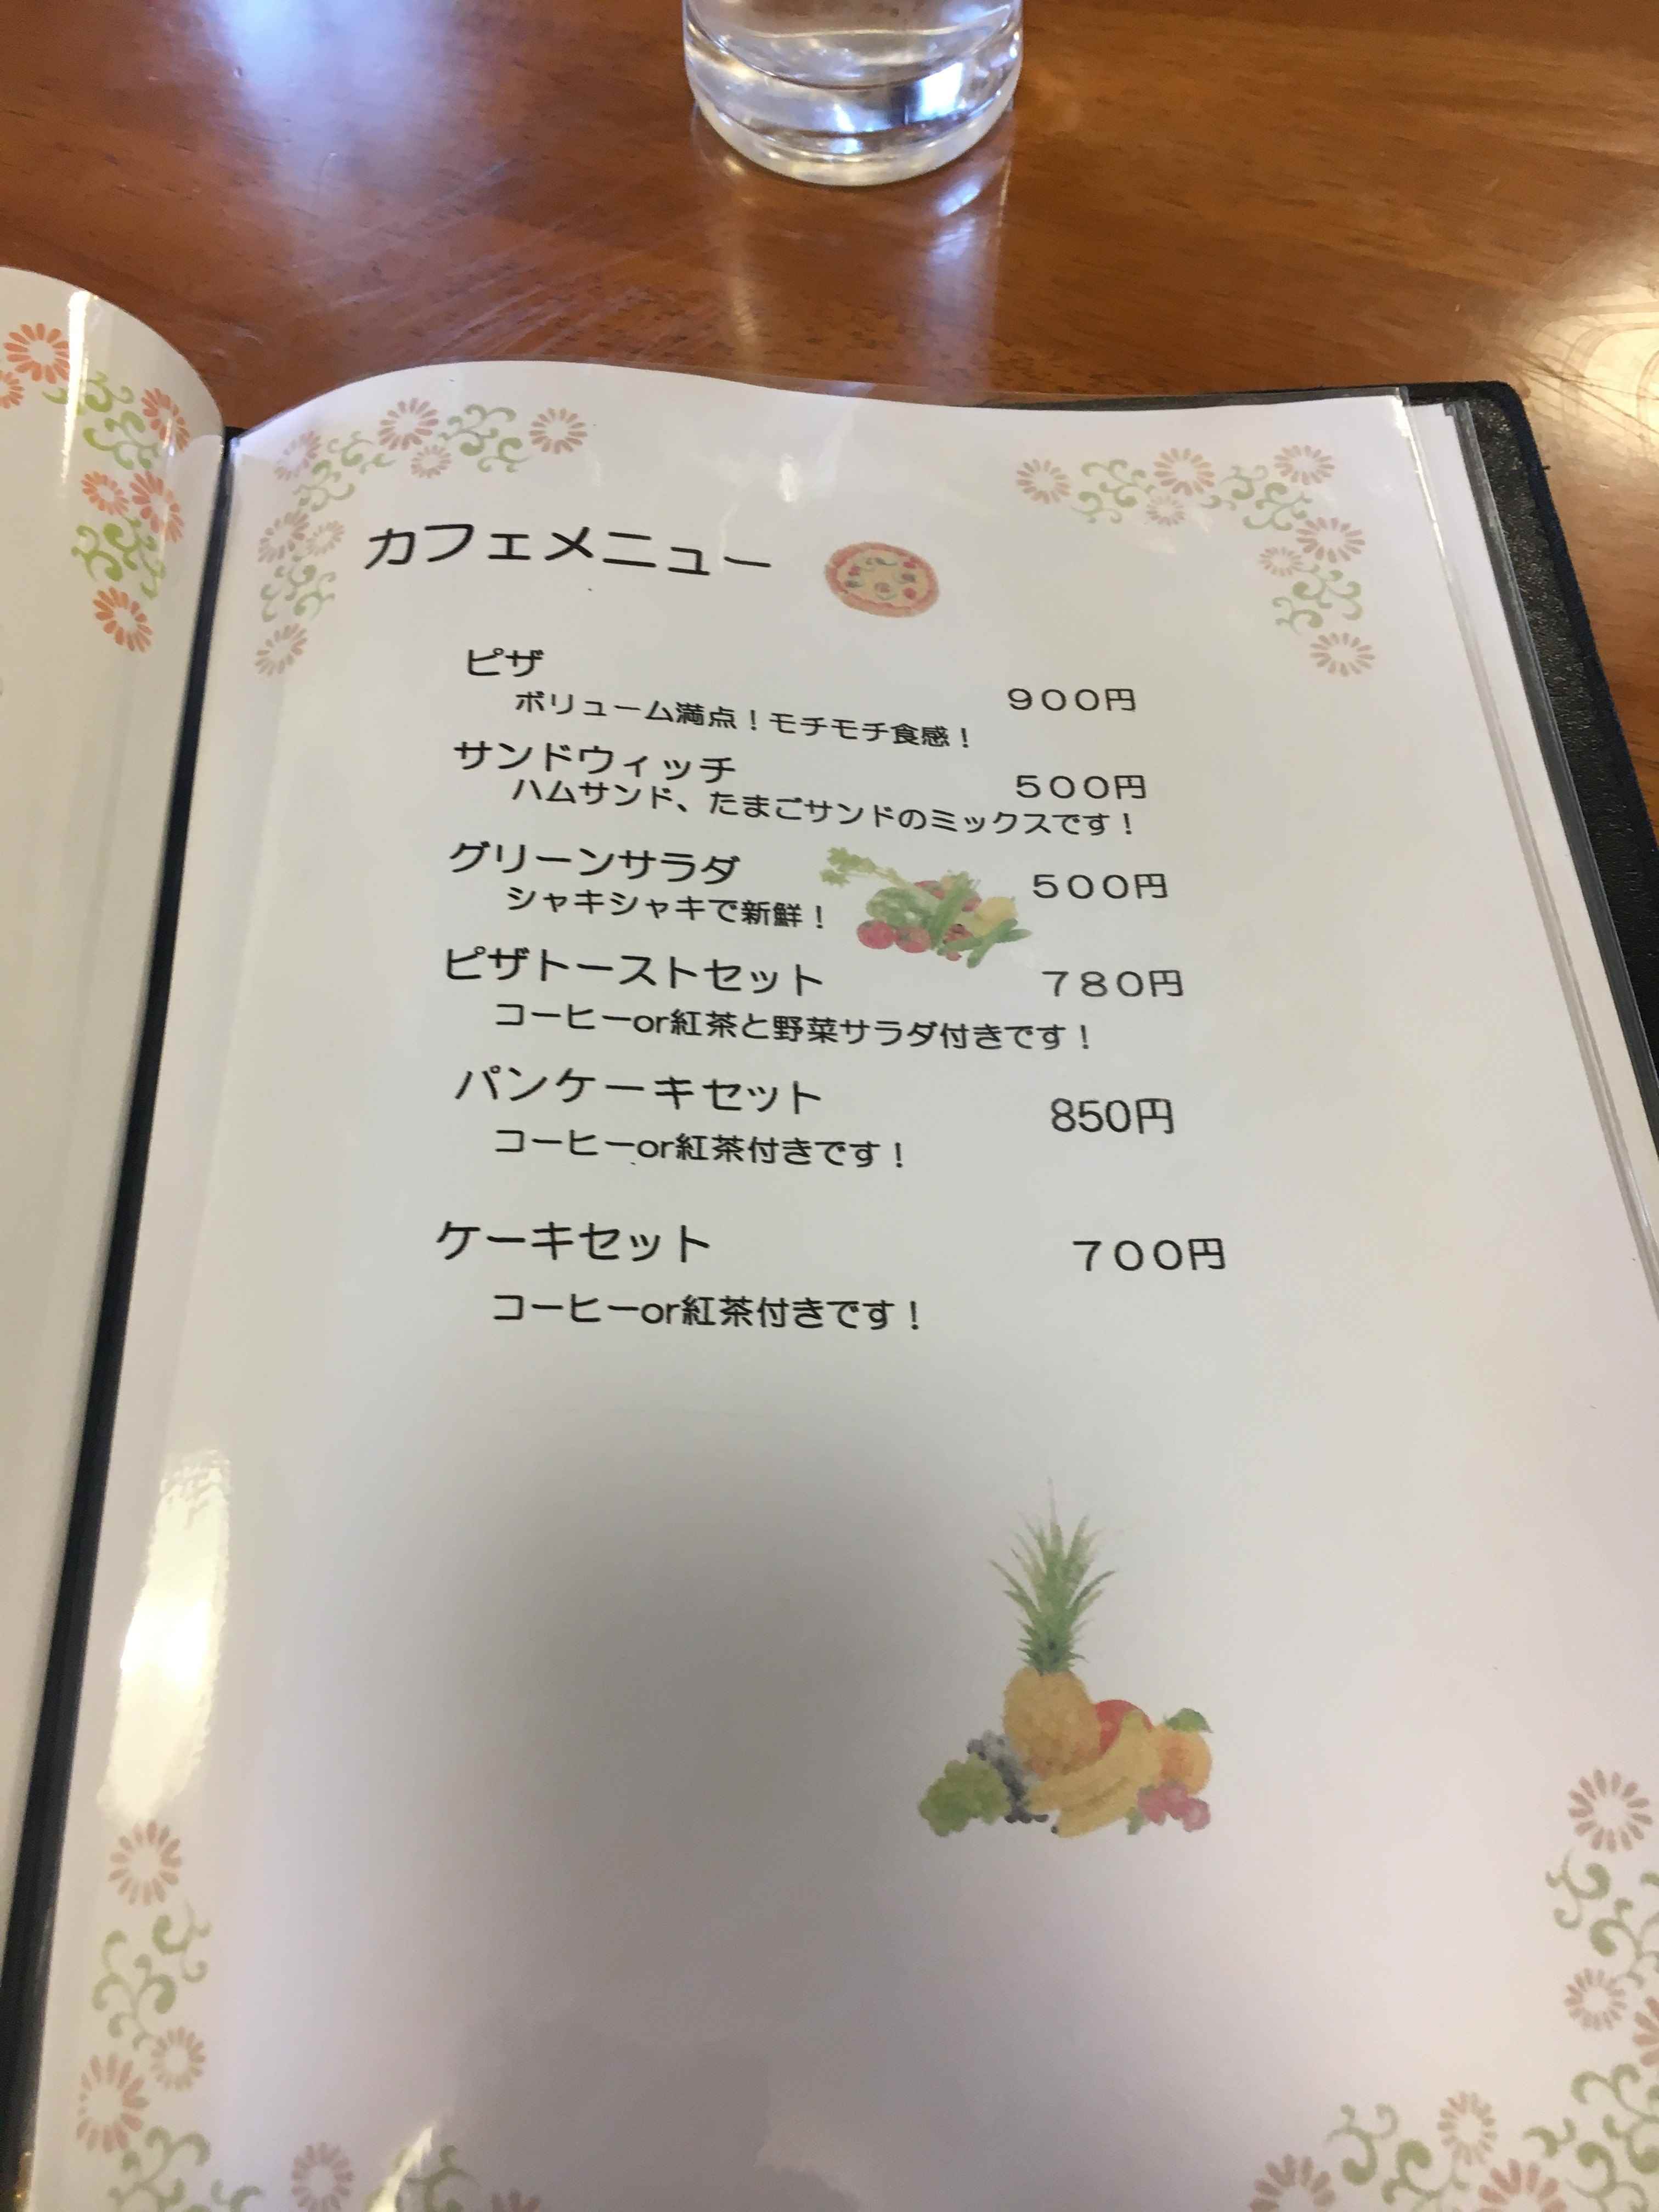 カフェメニュー
ピザ
９００円
ボリューム満点！モチモチ食感！
サンドウィッチ
５００円
ハムサンド、たまごサンドのミックスです！
グリーンサラダ
５００円
シャキシャキで新鮮！
ピザトーストセット
７８０円
コーヒーor紅茶と野菜サラダ付きです！
パンケーキセット
850円
コーヒーor紅茶付きです！
ケーキセット
７００円
コーヒーor紅茶付きです！